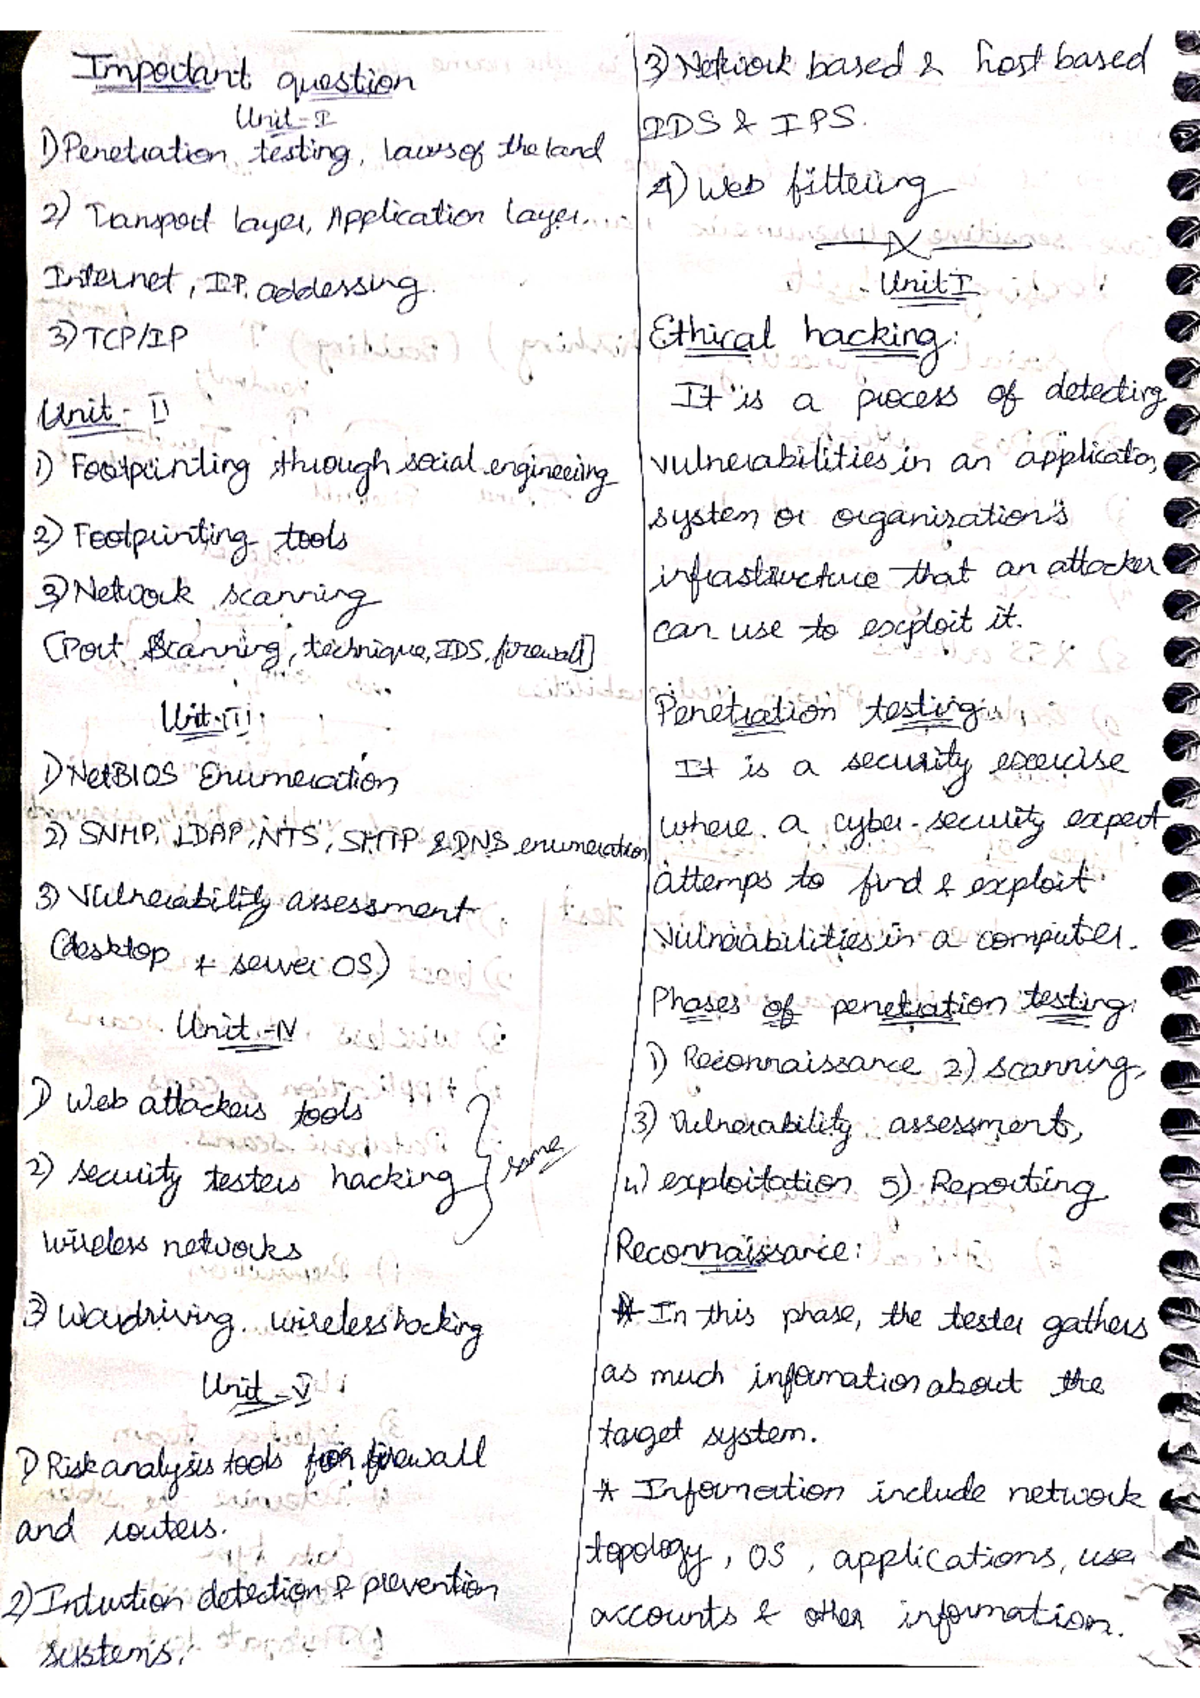 Important question
Unit-I
1) Penetration testing, laws of the land
2) Transport layer, Application layer...
Internet, IP addessing.
3) TCP/IP
Unit-II
1) Footprinting through social engineering
2) Footprinting tools
3) Network scanning
[Port Scanning, technique, IDS, firewall]
Unit-III
1) NetBIOS Enumeration
2) SNMP, LDAP, NTS, SMTP & DNS enumeration
3) Vulnerability assessment
(desktop + server OS)
Unit-IV
1) Web attackers tools
2) security testers hacking
some
wireless networks
3) Wardriving. wireless hacking
Unit-V
1) Risk analysis tools for firewall
and routers.
2) Intrution detection & prevention
systems.
3) Network based & host based
IDS & IPS.
4) Web filtering
Unit I
Ethical hacking:
It is a process of detecting
vulnerabilities in an application,
system or organization's
infrastructure that an attacker
can use to exploit it.
Penetration testing:
It is a security exercise
where a cyber-security expert
attemps to find & exploit
vulnerabilities in a computer.
Phases of penetration testing:
1) Reconnaissance 2) scanning,
3) Vulnerability assessment,
4) exploitation 5) Reporting
Reconnaissance:
* In this phase, the tester gathers
as much information about the
target system.
* Information include network
topology, OS, applications, use
accounts & other information.